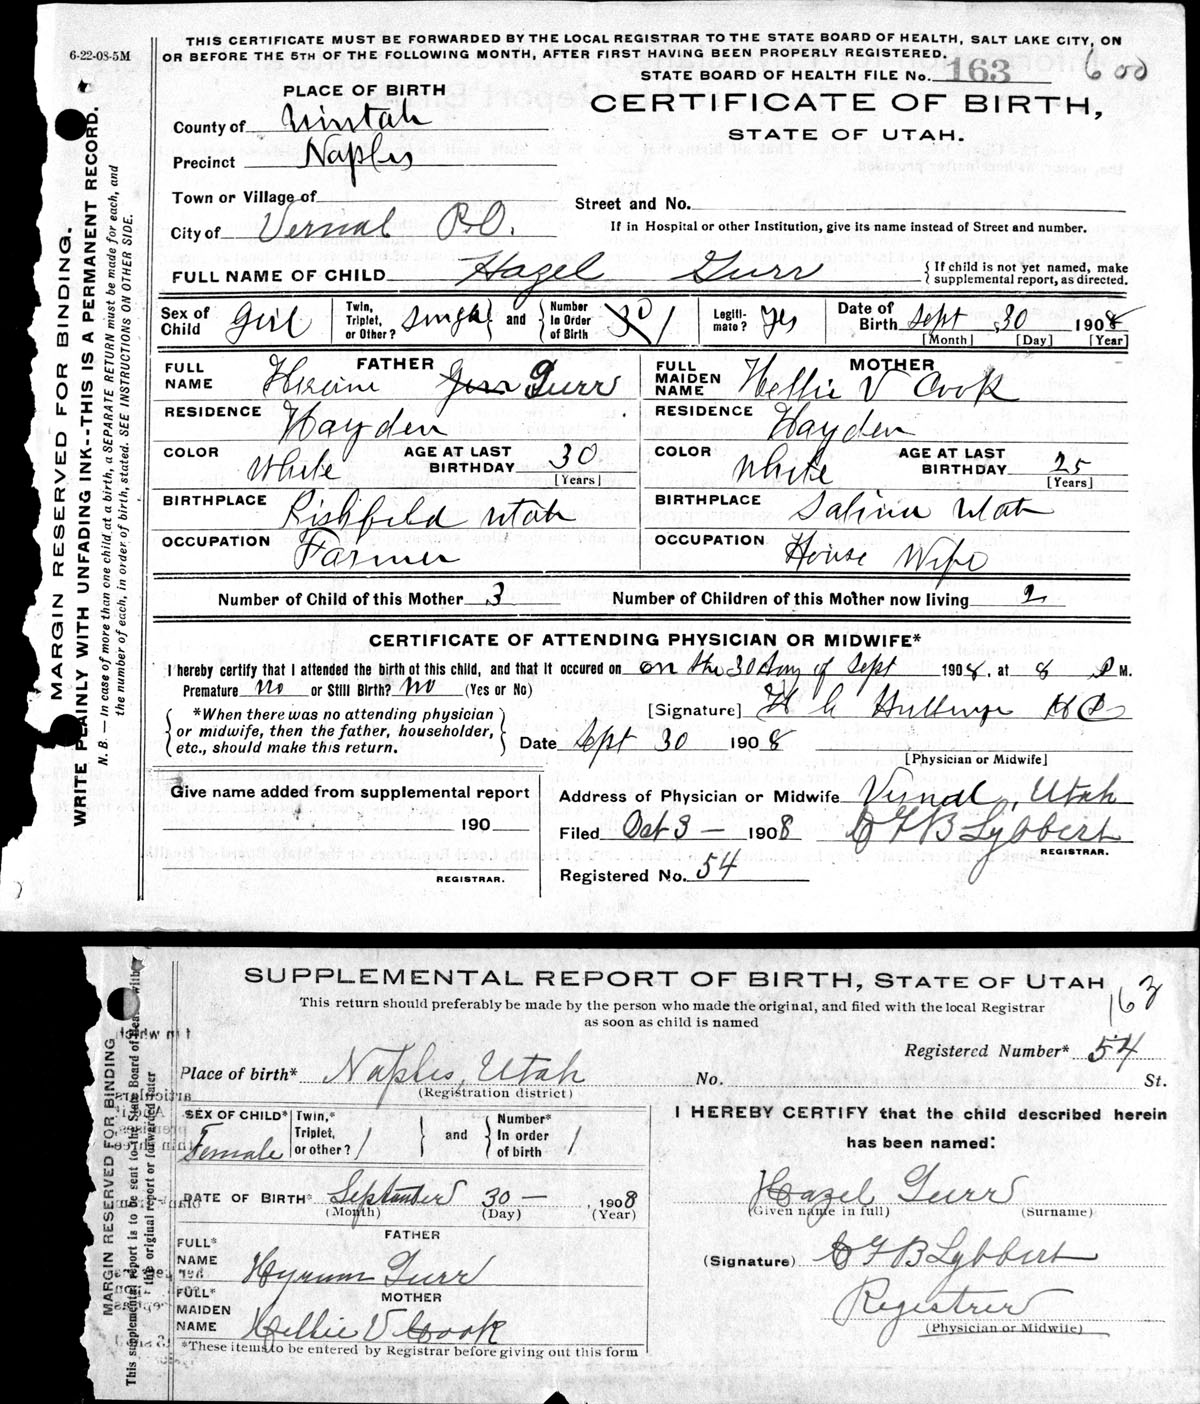 6-22-08-5M
THIS CERTIFICATE MUST BE FORWARDED BY THE LOCAL REGISTRAR TO THE STATE BOARD OF HEALTH, SALT LAKE CITY, ON
OR BEFORE THE 5TH OF THE FOLLOWING MONTH, AFTER FIRST HAVING BEEN PROPERLY REGISTERED.
STATE BOARD OF HEALTH FILE No. 163 600
PLACE OF BIRTH
CERTIFICATE OF BIRTH,
STATE OF UTAH.
County of Uintah
Precinct Naples
Town or Village of
Street and No.
City of Vernal P.O.
If in Hospital or other Institution, give its name instead of Street and number.
FULL NAME OF CHILD Hazel Gurr
{If child is not yet named, make
supplemental report, as directed.
Sex of Child Girl
Twin, Triplet, or Other? single and Number In Order of Birth 1
Legiti-mate? Yes
Date of Birth Sept 30 1908
[Month] [Day] [Year]
FATHER
FULL NAME Hiram Gurr
MOTHER
FULL MAIDEN NAME Nellie V Cook
RESIDENCE Hayden
RESIDENCE Hayden
COLOR White AGE AT LAST BIRTHDAY 30 [Years]
COLOR White AGE AT LAST BIRTHDAY 25 [Years]
BIRTHPLACE Richfield Utah
BIRTHPLACE Salina Utah
OCCUPATION Farmer
OCCUPATION House Wife
Number of Child of this Mother 3 Number of Children of this Mother now living 2
CERTIFICATE OF ATTENDING PHYSICIAN OR MIDWIFE*
I hereby certify that I attended the birth of this child, and that it occured on on the 30 day of Sept 1908, at 8 P M.
Premature no or Still Birth? no (Yes or No)
*When there was no attending physician
or midwife, then the father, householder,
etc., should make this return.
[Signature] H C
Date Sept 30 1908
[Physician or Midwife]
Give name added from supplemental report
190
REGISTRAR.
Address of Physician or Midwife Vernal, Utah
Filed Oct 3 - 1908 C F B Lybbert
REGISTRAR.
Registered No. 54
MARGIN RESERVED FOR BINDING.
WRITE PLAINLY WITH UNFADING INK--THIS IS A PERMANENT RECORD.
N. B. — In case of more than one child at a birth, a SEPARATE RETURN must be made for each, and
the number of each, in order of birth, stated. SEE INSTRUCTIONS ON OTHER SIDE.
SUPPLEMENTAL REPORT OF BIRTH, STATE OF UTAH
163
This return should preferably be made by the person who made the original, and filed with the local Registrar
as soon as child is named
Registered Number* 54
Place of birth* Naples, Utah
(Registration district)
No. St.
SEX OF CHILD* Female
Twin,* Triplet, or other? 1 and Number* In order of birth 1
I HEREBY CERTIFY that the child described herein
has been named:
DATE OF BIRTH* September 30 - 1908
(Month) (Day) (Year)
Hazel Gurr
(Given name in full) (Surname)
FATHER
FULL* NAME Hyrum Gurr
(Signature) C F B Lybbert
MOTHER
FULL* MAIDEN NAME Nellie V Cook
Registrer
(Physician or Midwife)
*These items to be entered by Registrar before giving out this form
MARGIN RESERVED FOR BINDING
This supplemental report is to be sent to the State Board of Health with
the original report or forwarded later